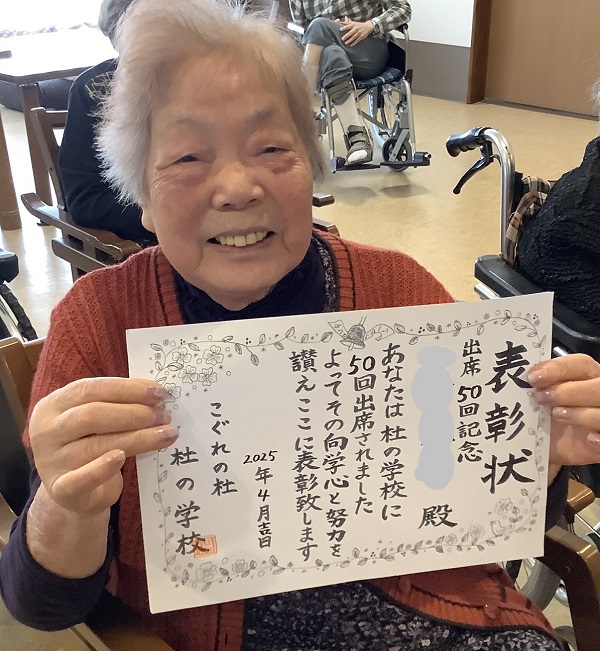 表彰状
出席50回記念
殿
あなたは杜の学校に
50回出席されました
よってその向学心と努力を
讃えここに表彰致します
2025年4月吉日
こぐれの杜
杜の学校